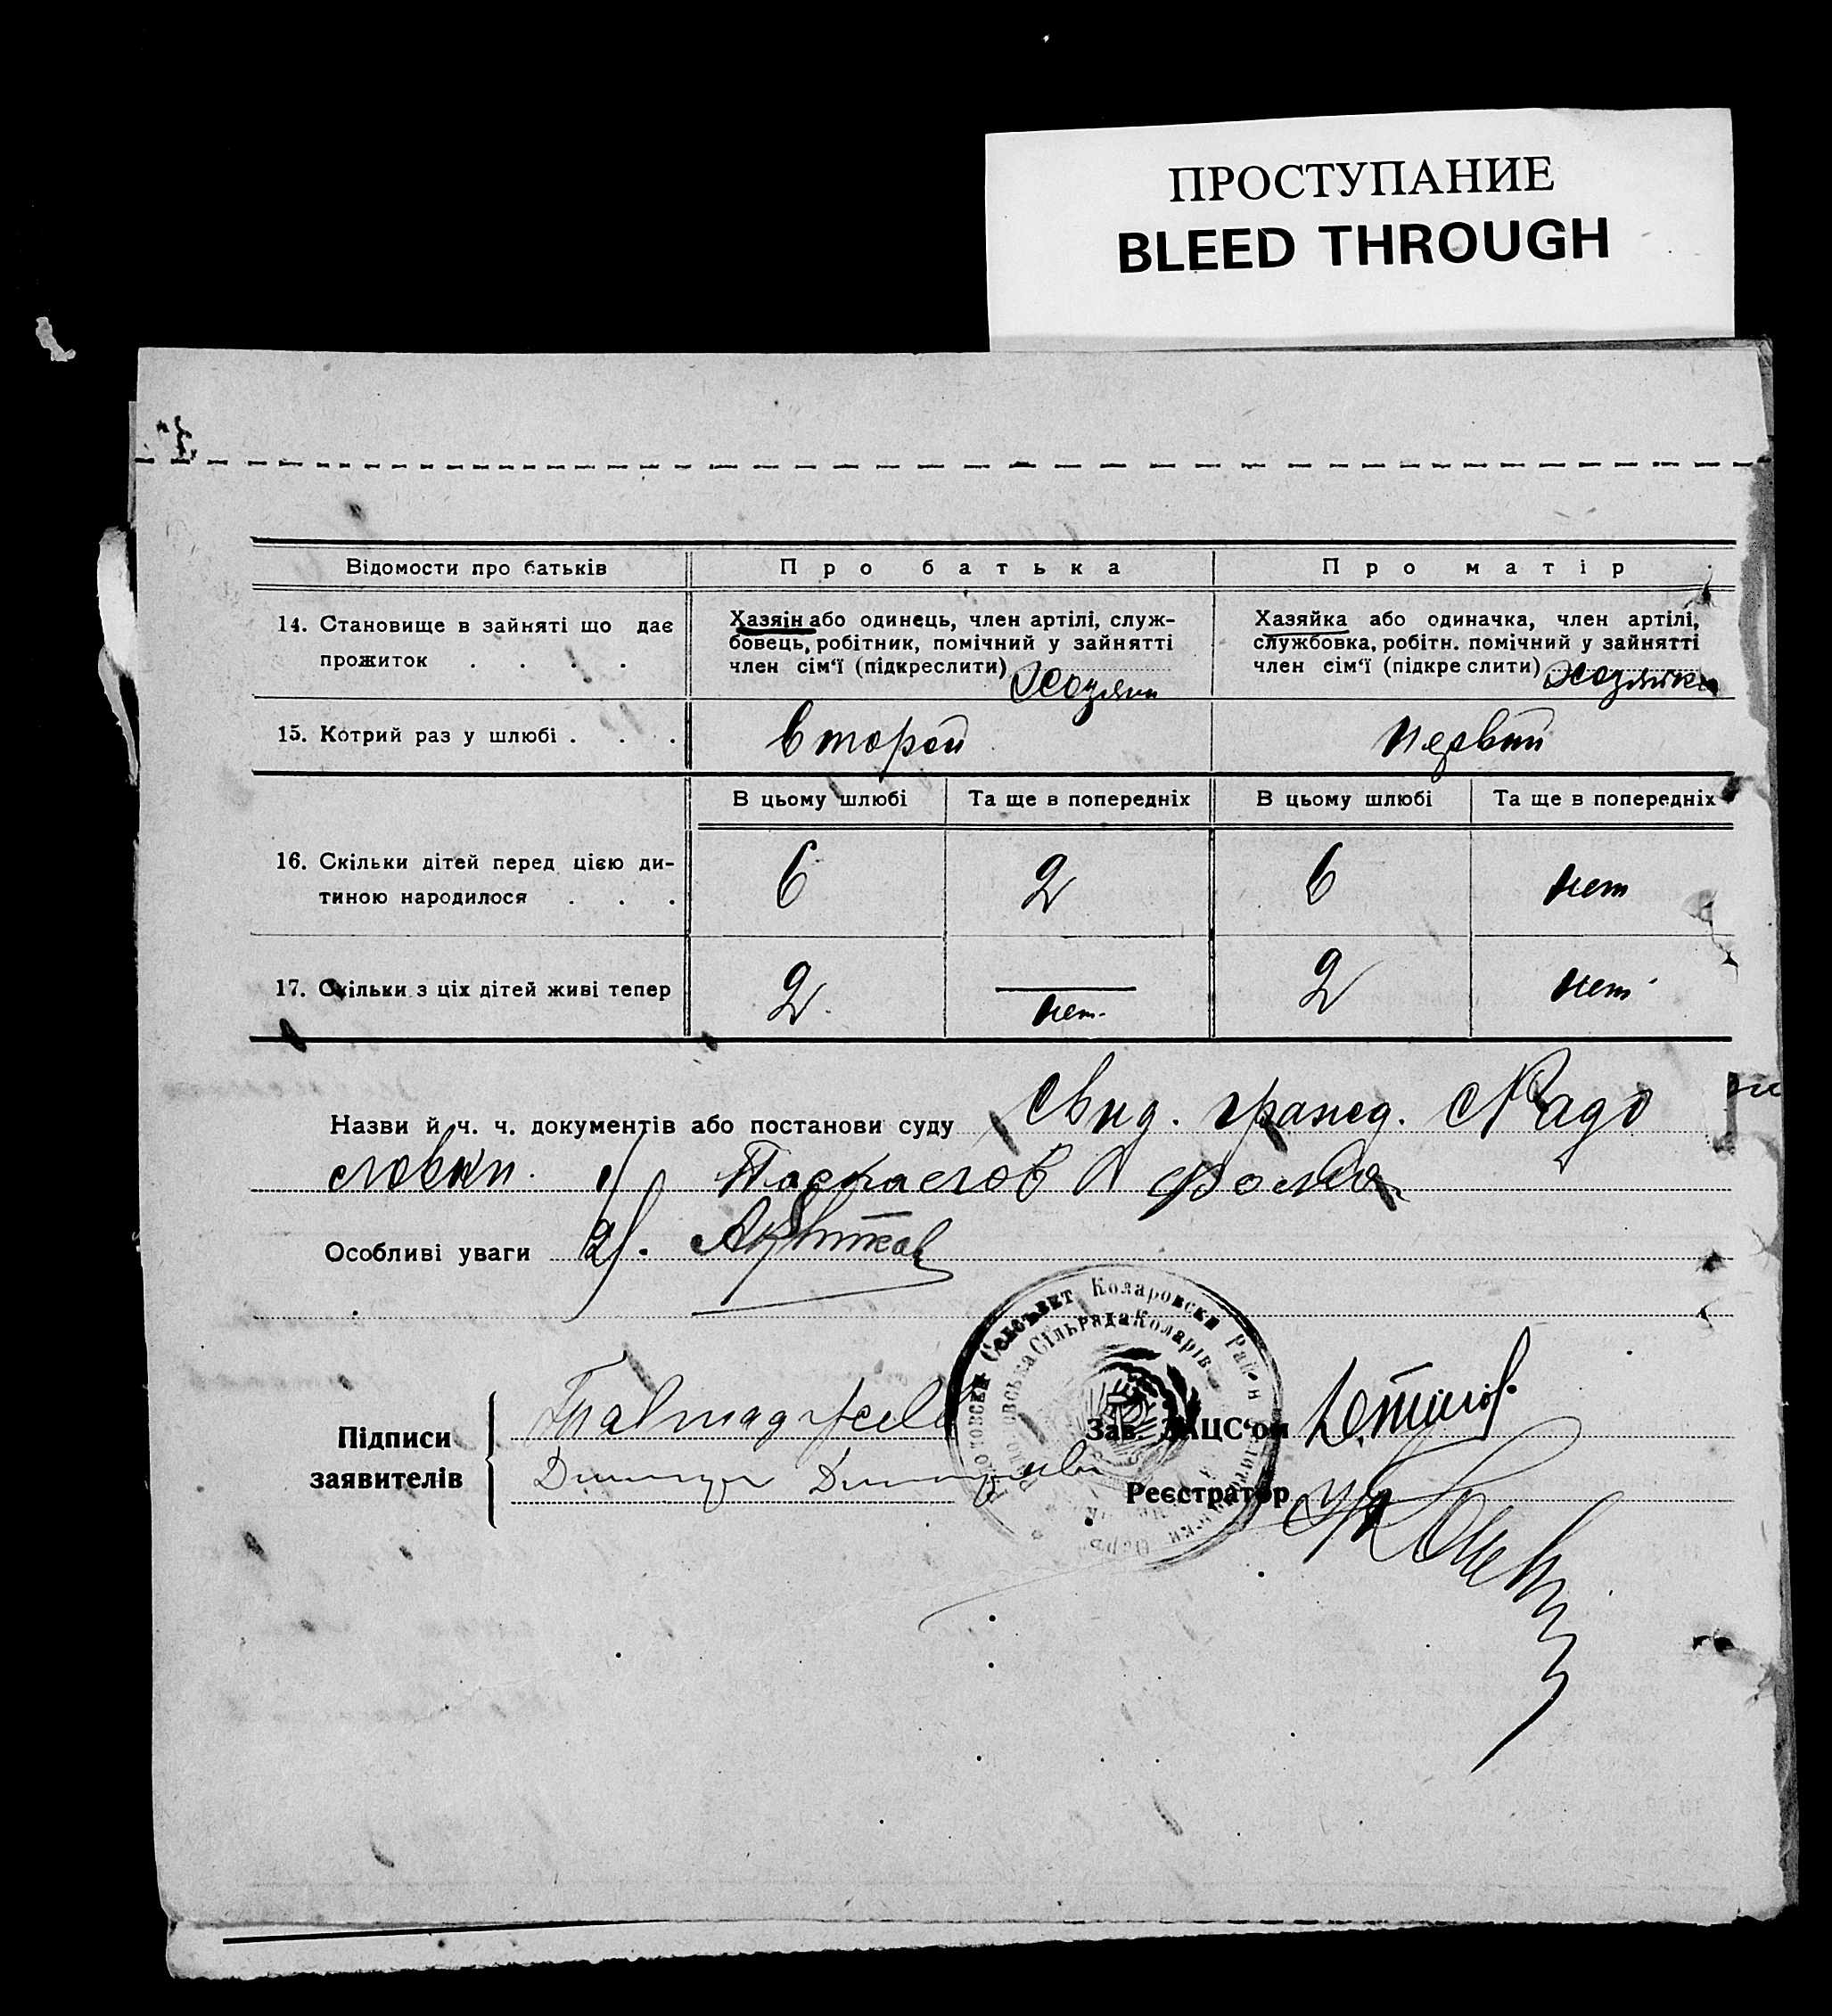 ПРОСТУПАНИЕ
BLEED THROUGH
Відомости про батьків
Про батька
Про матір
14. Становище в зайняті що дає
прожиток . . . .
Хазяїн або одинець, член артілі, служ-
бовець, робітник, помічний у зайнятті
член сім'ї (підкреслити) Хозяин
Хазяйка або одиначка, член артілі,
службовка, робітн. помічний у зайнятті
член сім'ї (підкреслити) Хозяйка
15. Котрий раз у шлюбі . . .
второй
первый
В цьому шлюбі
Та ще в попередніх
В цьому шлюбі
Та ще в попередніх
16. Скільки дітей перед цією ди-
тиною народилося . . .
6
2
6
нет
17. Скільки з ціх дітей живі тепер
2
нет
2
нет
Назви й ч. ч. документів або постанови суду Свид. гражд.
1)
Особливі уваги 2).
Коларовски Район
Сільрада
Підписи
заявителів
Зав. ЗАЦС'ом
Реєстратор